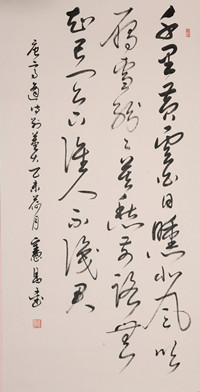 千里黄雲白日曛北風吹
雁雪紛〻莫愁前路無
知己天下誰人不識君
唐高適詩別董大乙未荷月 書